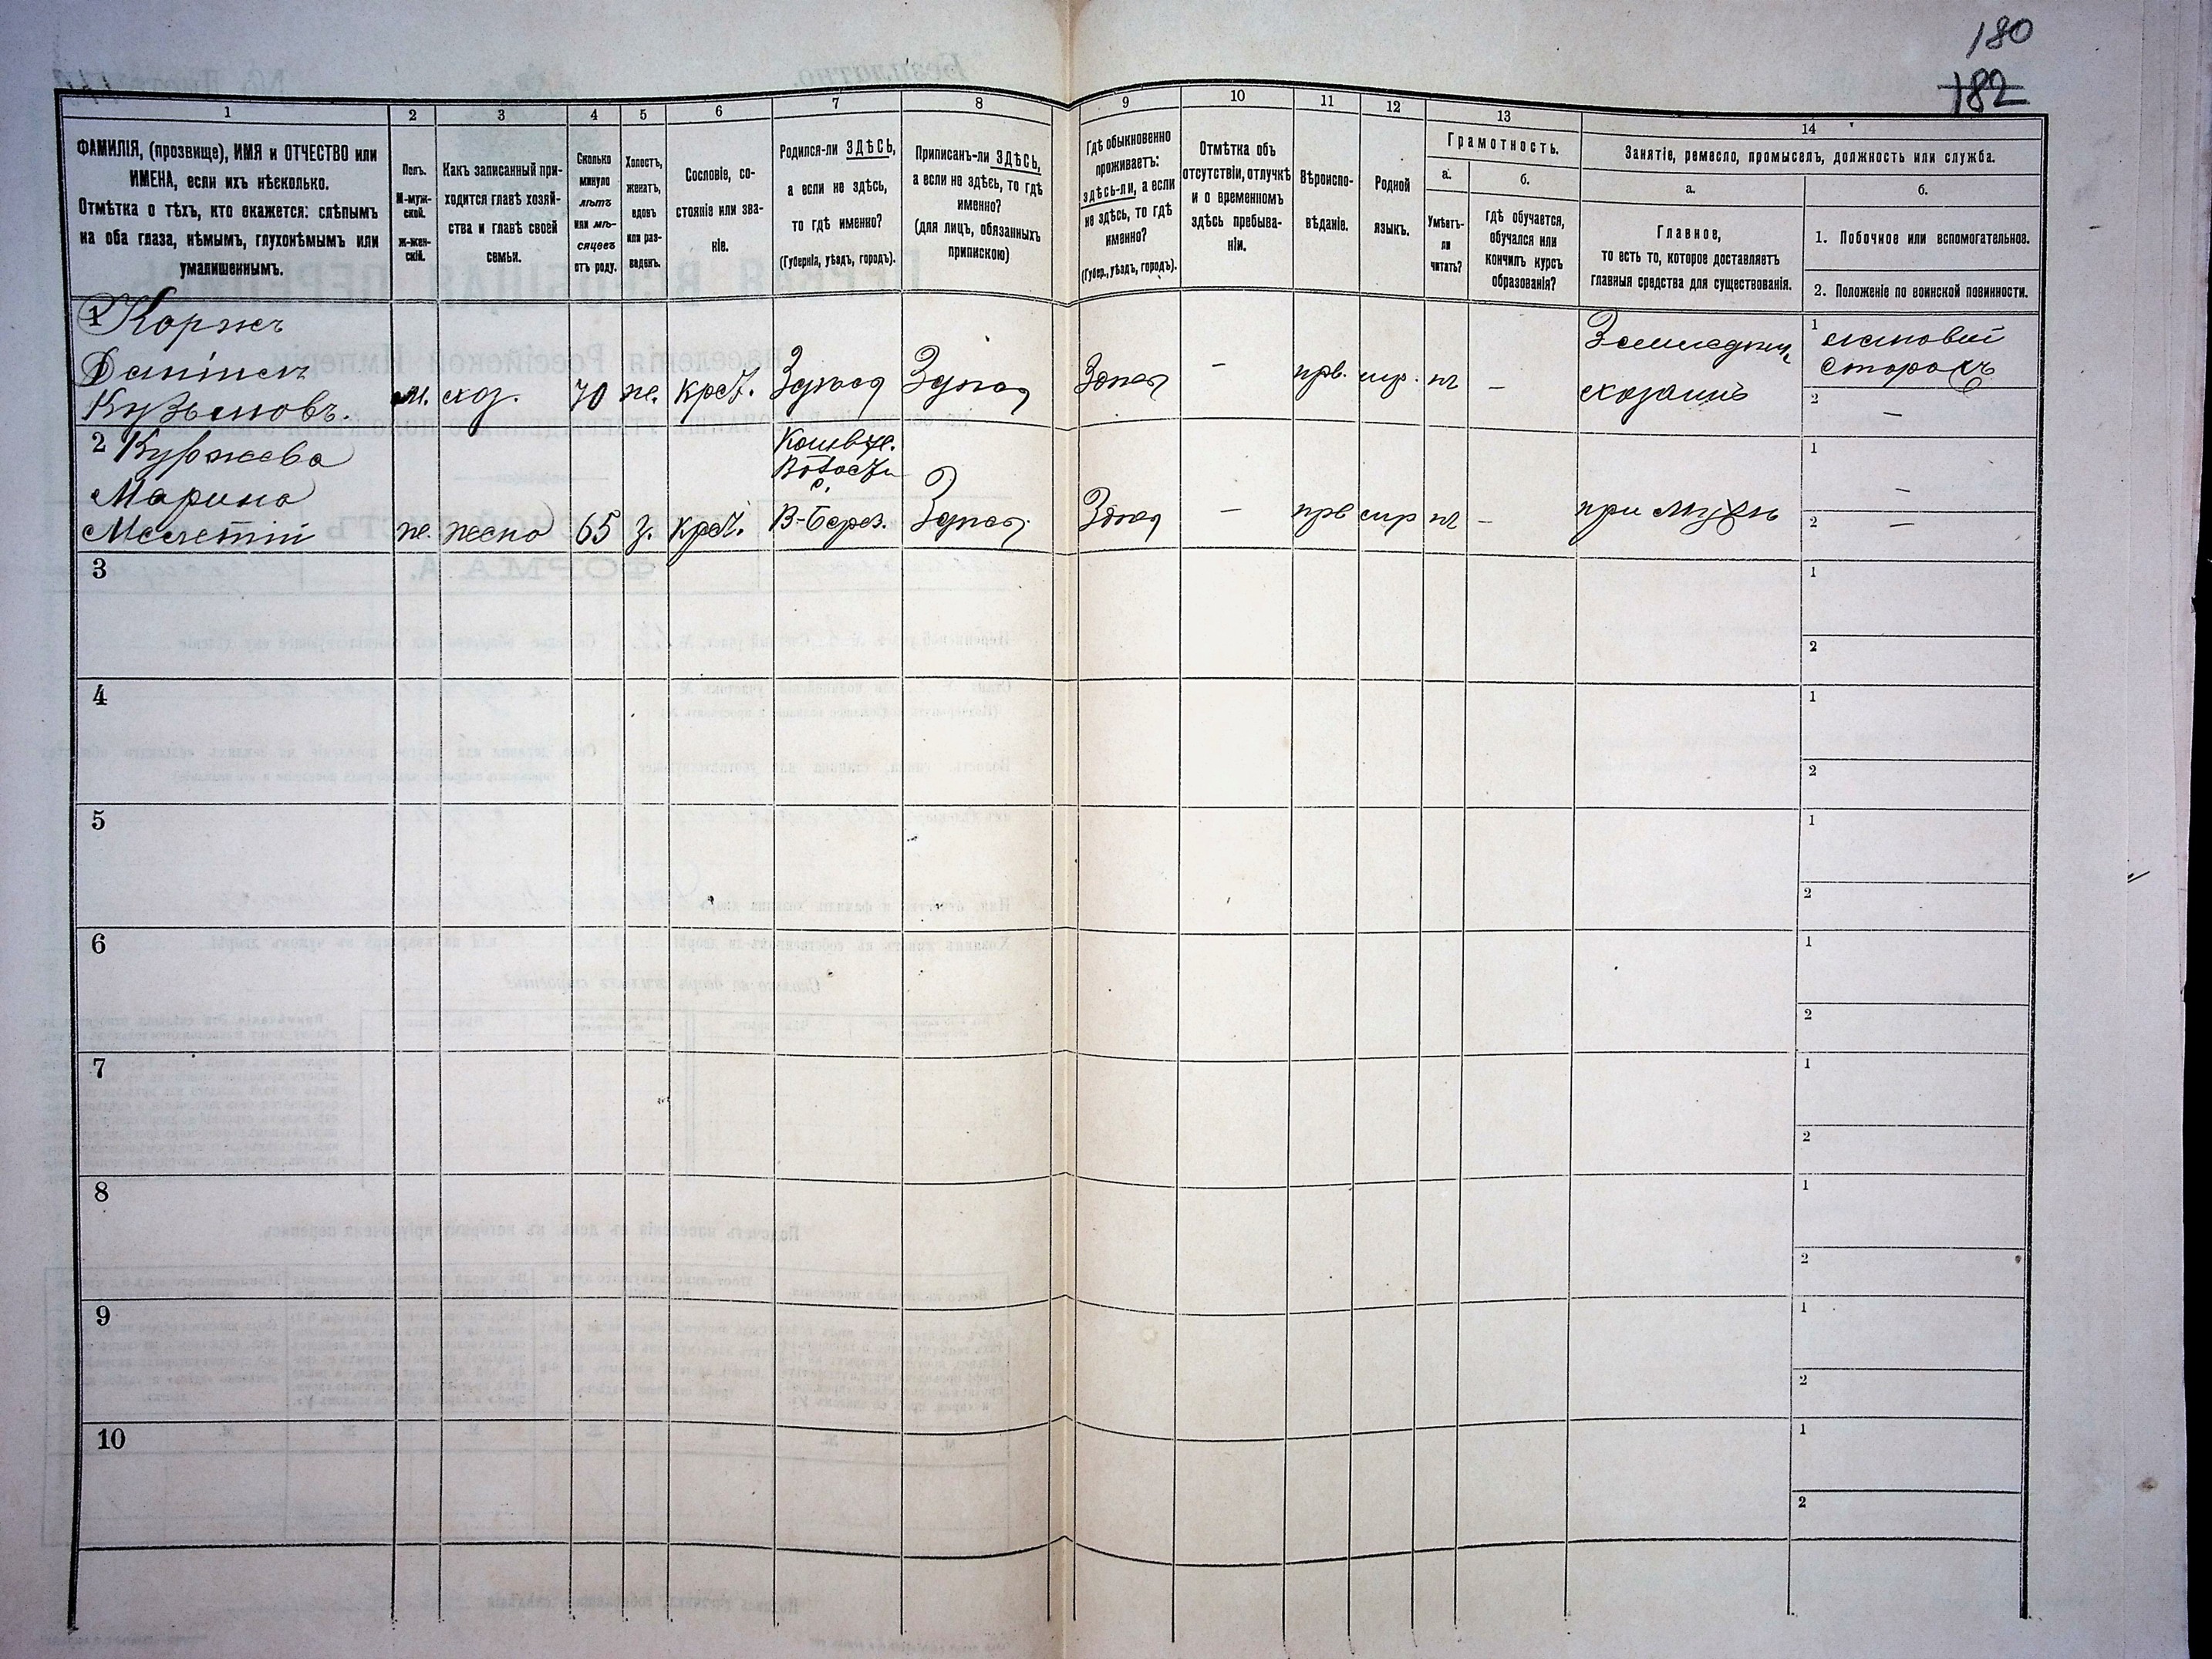 180
182
1
2
3
4
5
6
7
8
9
10
11
12
13
14
ФАМИЛІЯ, (прозвище), ИМЯ и ОТЧЕСТВО или
ИМЕНА, если ихъ нѣсколько.
Отмѣтка о тѣхъ, кто окажется: слѣпымъ
на оба глаза, нѣмымъ, глухонѣмымъ или
умалишеннымъ.
Полъ.
М-муж-
ской.
ж-жен-
скій.
Какъ записанный при-
ходится главѣ хозяй-
ства и главѣ своей
семьи.
Сколько
минуло
лѣтъ
или мѣ-
сяцевъ
отъ роду.
Холостъ,
женатъ,
вдовъ
или раз-
веденъ.
Сословіе, со-
стояніе или зва-
ніе.
Родился-ли ЗДѢСЬ,
а если не здѣсь,
то гдѣ именно?
(Губернія, уѣздъ, городъ).
Приписанъ-ли ЗДѢСЬ,
а если не здѣсь, то гдѣ
именно?
(для лицъ, обязанныхъ
припискою)
Гдѣ обыкновенно
проживаетъ:
здѣсь-ли, а если
не здѣсь, то гдѣ
именно?
(Губер., уѣздъ, городъ).
Отмѣтка объ
отсутствіи, отлучкѣ
и о временномъ
здѣсь пребыва-
ніи.
Вѣроиспо-
вѣданіе.
Родной
языкъ.
Грамотность.
а.
Умѣетъ-
ли
читать?
б.
гдѣ обучается,
обучался или
кончилъ курсъ
образованія?
Занятіе, ремесло, промыселъ, должность или служба.
а.
Главное,
то есть то, которое доставляетъ
главныя средства для существованія.
б.
1. Побочное или вспомогательное.
2. Положеніе по воинской повинности.
1 Коржъ
Даніилъ
Кузьмовъ.
м.
хоз.
70
же.
крест.
Здѣсь
Здѣсь
Здѣсь
–
прв.
мр.
нѣ
–
хозяинъ
1
сторожъ
2 –
2 Куржева
Марина
Мелетій
же.
жена
65
з.
крест.
Волости
с.
В-Берез.
Здѣсь
Здѣсь
–
прв
мр
нѣ
–
при мужѣ
1 –
2 –
3
1
2
4
1
2
5
1
2
6
1
2
7
1
2
8
1
2
9
1
2
10
1
2